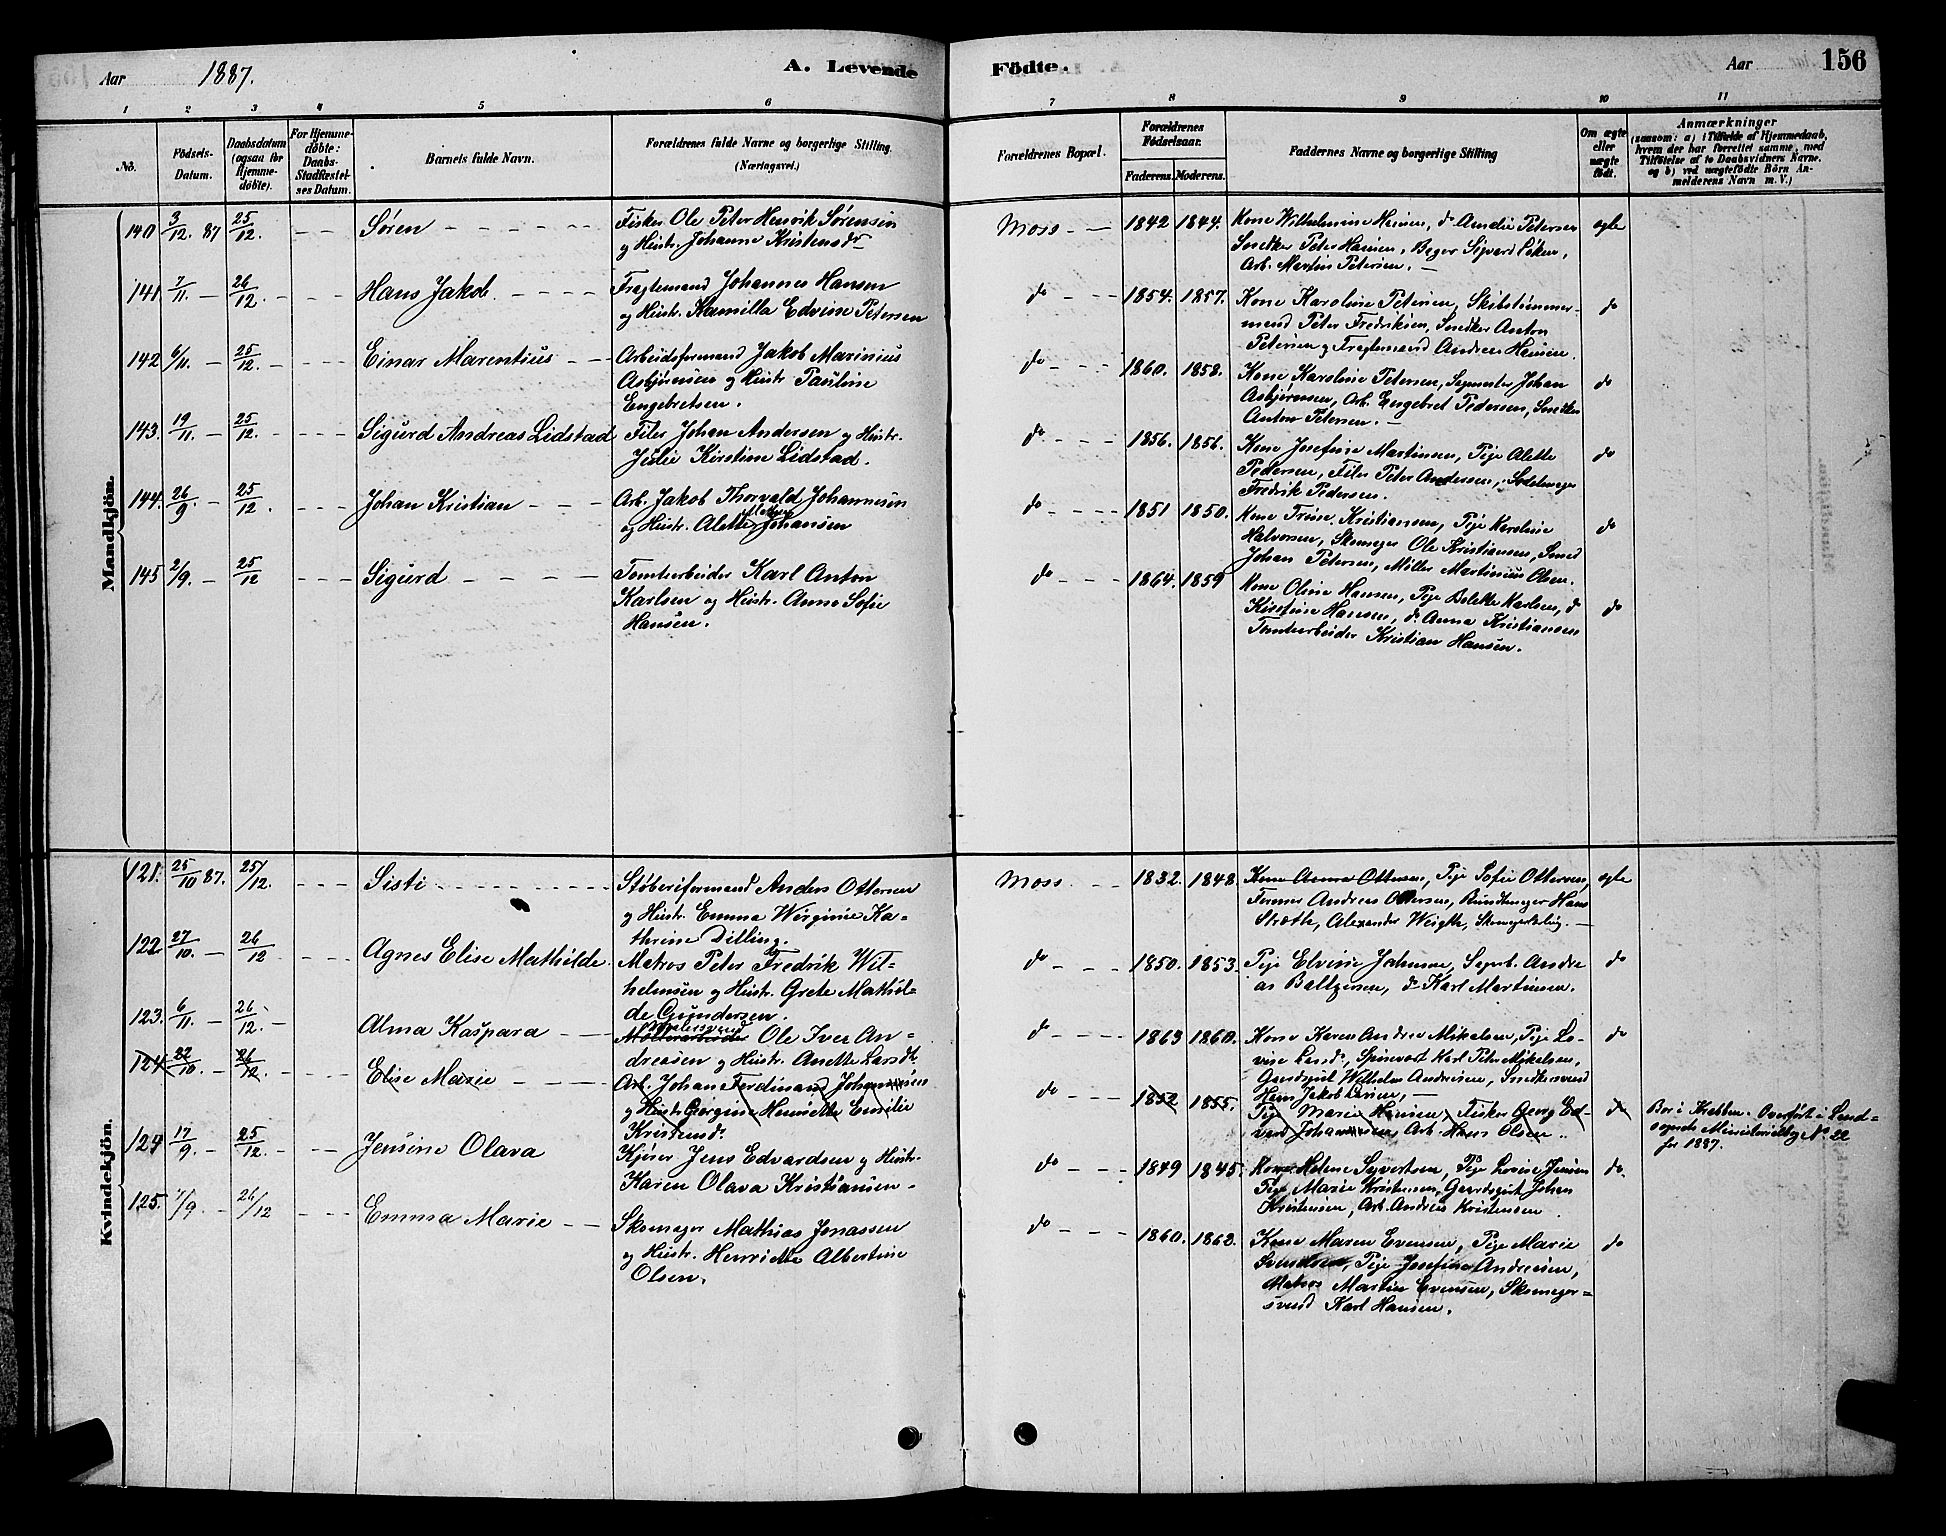 Aar 1887.
A. Levende
Födte.
Aar
156
1 2 3 4 5 6 7 8 9 10 11
No.
Födsels-Datum.
Daabsdatum (ogsaa for Hjemme-döbte).
For Hjemme-döbte: Daabs-Stadfæstel-ses Datum.
Barnets fulde Navn.
Forældrenes fulde Navne og borgerlige Stilling.
(Næringsvei.)
Forældrenes Bopæl.
Forældrenes Födselsaar.
Faderens. Moderens.
Faddernes Navne og borgerlige Stilling
Om ægte eller uægte födt.
Anmærkninger
(saasom: a) i Tilfælde af Hjemmedaab,
hvem der har forrettet samme, med
Tilföielse af to Daabsvidners Navne.
og b) ved uægtefödte Börn An-
melderens Navn m. V.)
Mandkjön.
140 3/12. 87 25/12. Søren Fisker Ole Peter Henrik Sørensen
og Hustr. Johanne Kristensdr
Moss 1842 1844. Kone Wilhelmine Hansen, do Amalie Petersen
Snedker Peter Hansen, Bager Sigvard Löken,
Arb. Martin Petersen.
ægte
141. 7/11. 26/12. Hans Jakob Fragtemand Johannes Hansen
og Hustr. Kamilla Edvine Petersen
do 1854. 1857. Kone Karoline Petersen, Skibstömmer-
mand Peter Fredriksen, Snedker Anton
Petersen og Fragtemand Andreas Hansen.
do
142 6/11. 25/12. Einar Marentius Arbeidsformand Jakob Marinius
Asbjörnsen og Hustr. Pauline
Engebretsen.
do 1860. 1858. Kone Karoline Petersen, Johan
Asbjörnsen, Arb. Engebret Pedersen, Snedker
Anton Petersen.
do
143. 19/11. 25/12. Sigurd Andreas Lidstad Filer Johan Andersen og Hustr.
Julie Kirstine Lidstad.
do 1856. 1856. Kone Josefine Martinsen, Pige Alette
Pedersen, Filer Peter Andersen, Sadelmager
Fredrik Pedersen.
do
144. 26/9 25/12. Johan Kristian Arb. Jakob Thorvald Johannesen
og Hustr. Alette Johansen
do 1851 1850. Kone Trine Kristiansen, Pige Karoline
Halvorsen, Skomager Ole Kristiansen, Smed
Johan Petersen, Möller Martinius Olsen.
do
145 2/9. 25/12 Sigurd Tomtearbeider Karl Anton
Karlsen og Hustr. Anne Sofie
Hansen.
do 1864. 1859 Kone Oline Hansen, Pige Bolette Karlsen, do
Kirstine Hansen, do Anna Kristiansen
Tomtearbeider Kristian Hansen.
do
Kvindekjön.
121. 25/10 87. 25/12. Sisti Støberiformand Anders Ottersen
og Hustr. Emma Wirginie Ka-
thrine Dilling.
Moss 1832. 1848. Kone Anna Ottersen, Pige Sofie Ottersen,
Former Andreas Ottersen, Bundtmager Hans
Stræthe, Alexander
ægte
122. 27/10. 26/12 Agnes Elise Mathilde. Matros Peter Fredrik Wil-
helmsen og Hustr. Grete Mathil-
de Gundersen.
do 1850. 1853. Pige Elvine Johnsen, Andre
as Baltzersen, do Karl Martinsen.
do
123. 6/11. 26/12. Alma Kaspara Ole Iver An-
dreasen og Hustr. Anette Larsdr.
do 1863 1860. Kone Karen Andrea Mikalsen, Pige Lo-
vise Larsdr, Karl Peter Mikalsen,
Gaardsgut Wilhelm Andreasen, Snedkersvend
Hans Jakob Larsen,
do
124 22/10. 26/12. Elise Marie Arb. Johan Ferdinand Johannesen
og Hustr. Georgine Henriette Emilie
Kristensdr.
do 1852 1855. Pige Marie Hansen, Fisker Georg Ed-
vard Johannesen, Arb. Hans Olsen.
do
Bor i Krabben. Overført i Land-
sognets Ministerialbog No 22
for 1887.
124 17/9. 25/12. Jensine Olava Kjører Jens Edvardsen og Hustr.
Karen Olava Kristiansen
do 1849 1845. Kone Helene Syvertsen, Pige Lovise Jensen
Pige Marie Kristensen, Gaardsgut Johan
Kristensen, Arb. Andreas Kristensen
do.
125. 7/9. 26/12 Emma Marie Skomager Mathias Jonassen
og Hustr. Henriette Albertine
Olsen.
do 1860. 1862. Kone Maren Evensen, Pige Marie
Svendsen, Pige Josefine Andreasen,
Matros Martin Evensen, Skomager-
svend Karl Hansen.
do